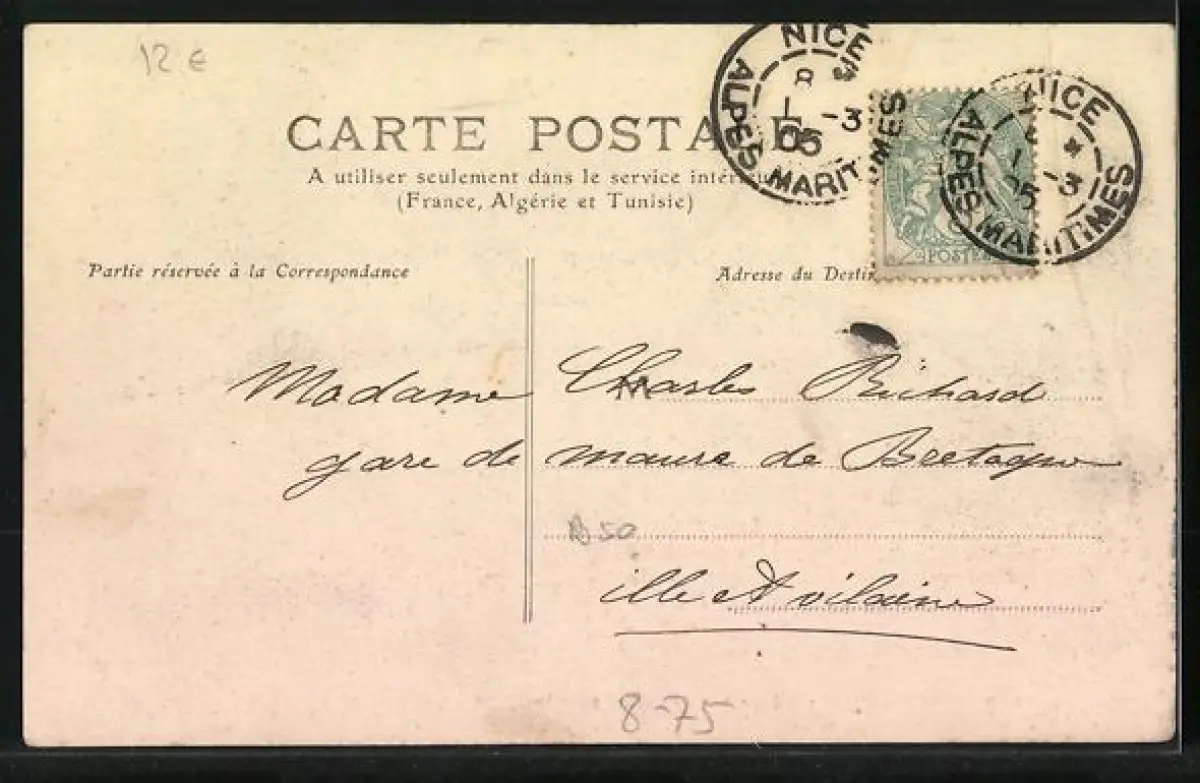 12 €
NICE
ALPES MARITIMES
8
1 -3
05
NICE
ALPES MARITIMES
1 -3
05
POSTES
CARTE POSTALE
A utiliser seulement dans le service intérieur
(France, Algérie et Tunisie)
Partie réservée à la Correspondance
Adresse du Destin
Madame Charles Richard
gare de maure de Bretagne
50
ille et vilaine
8-75